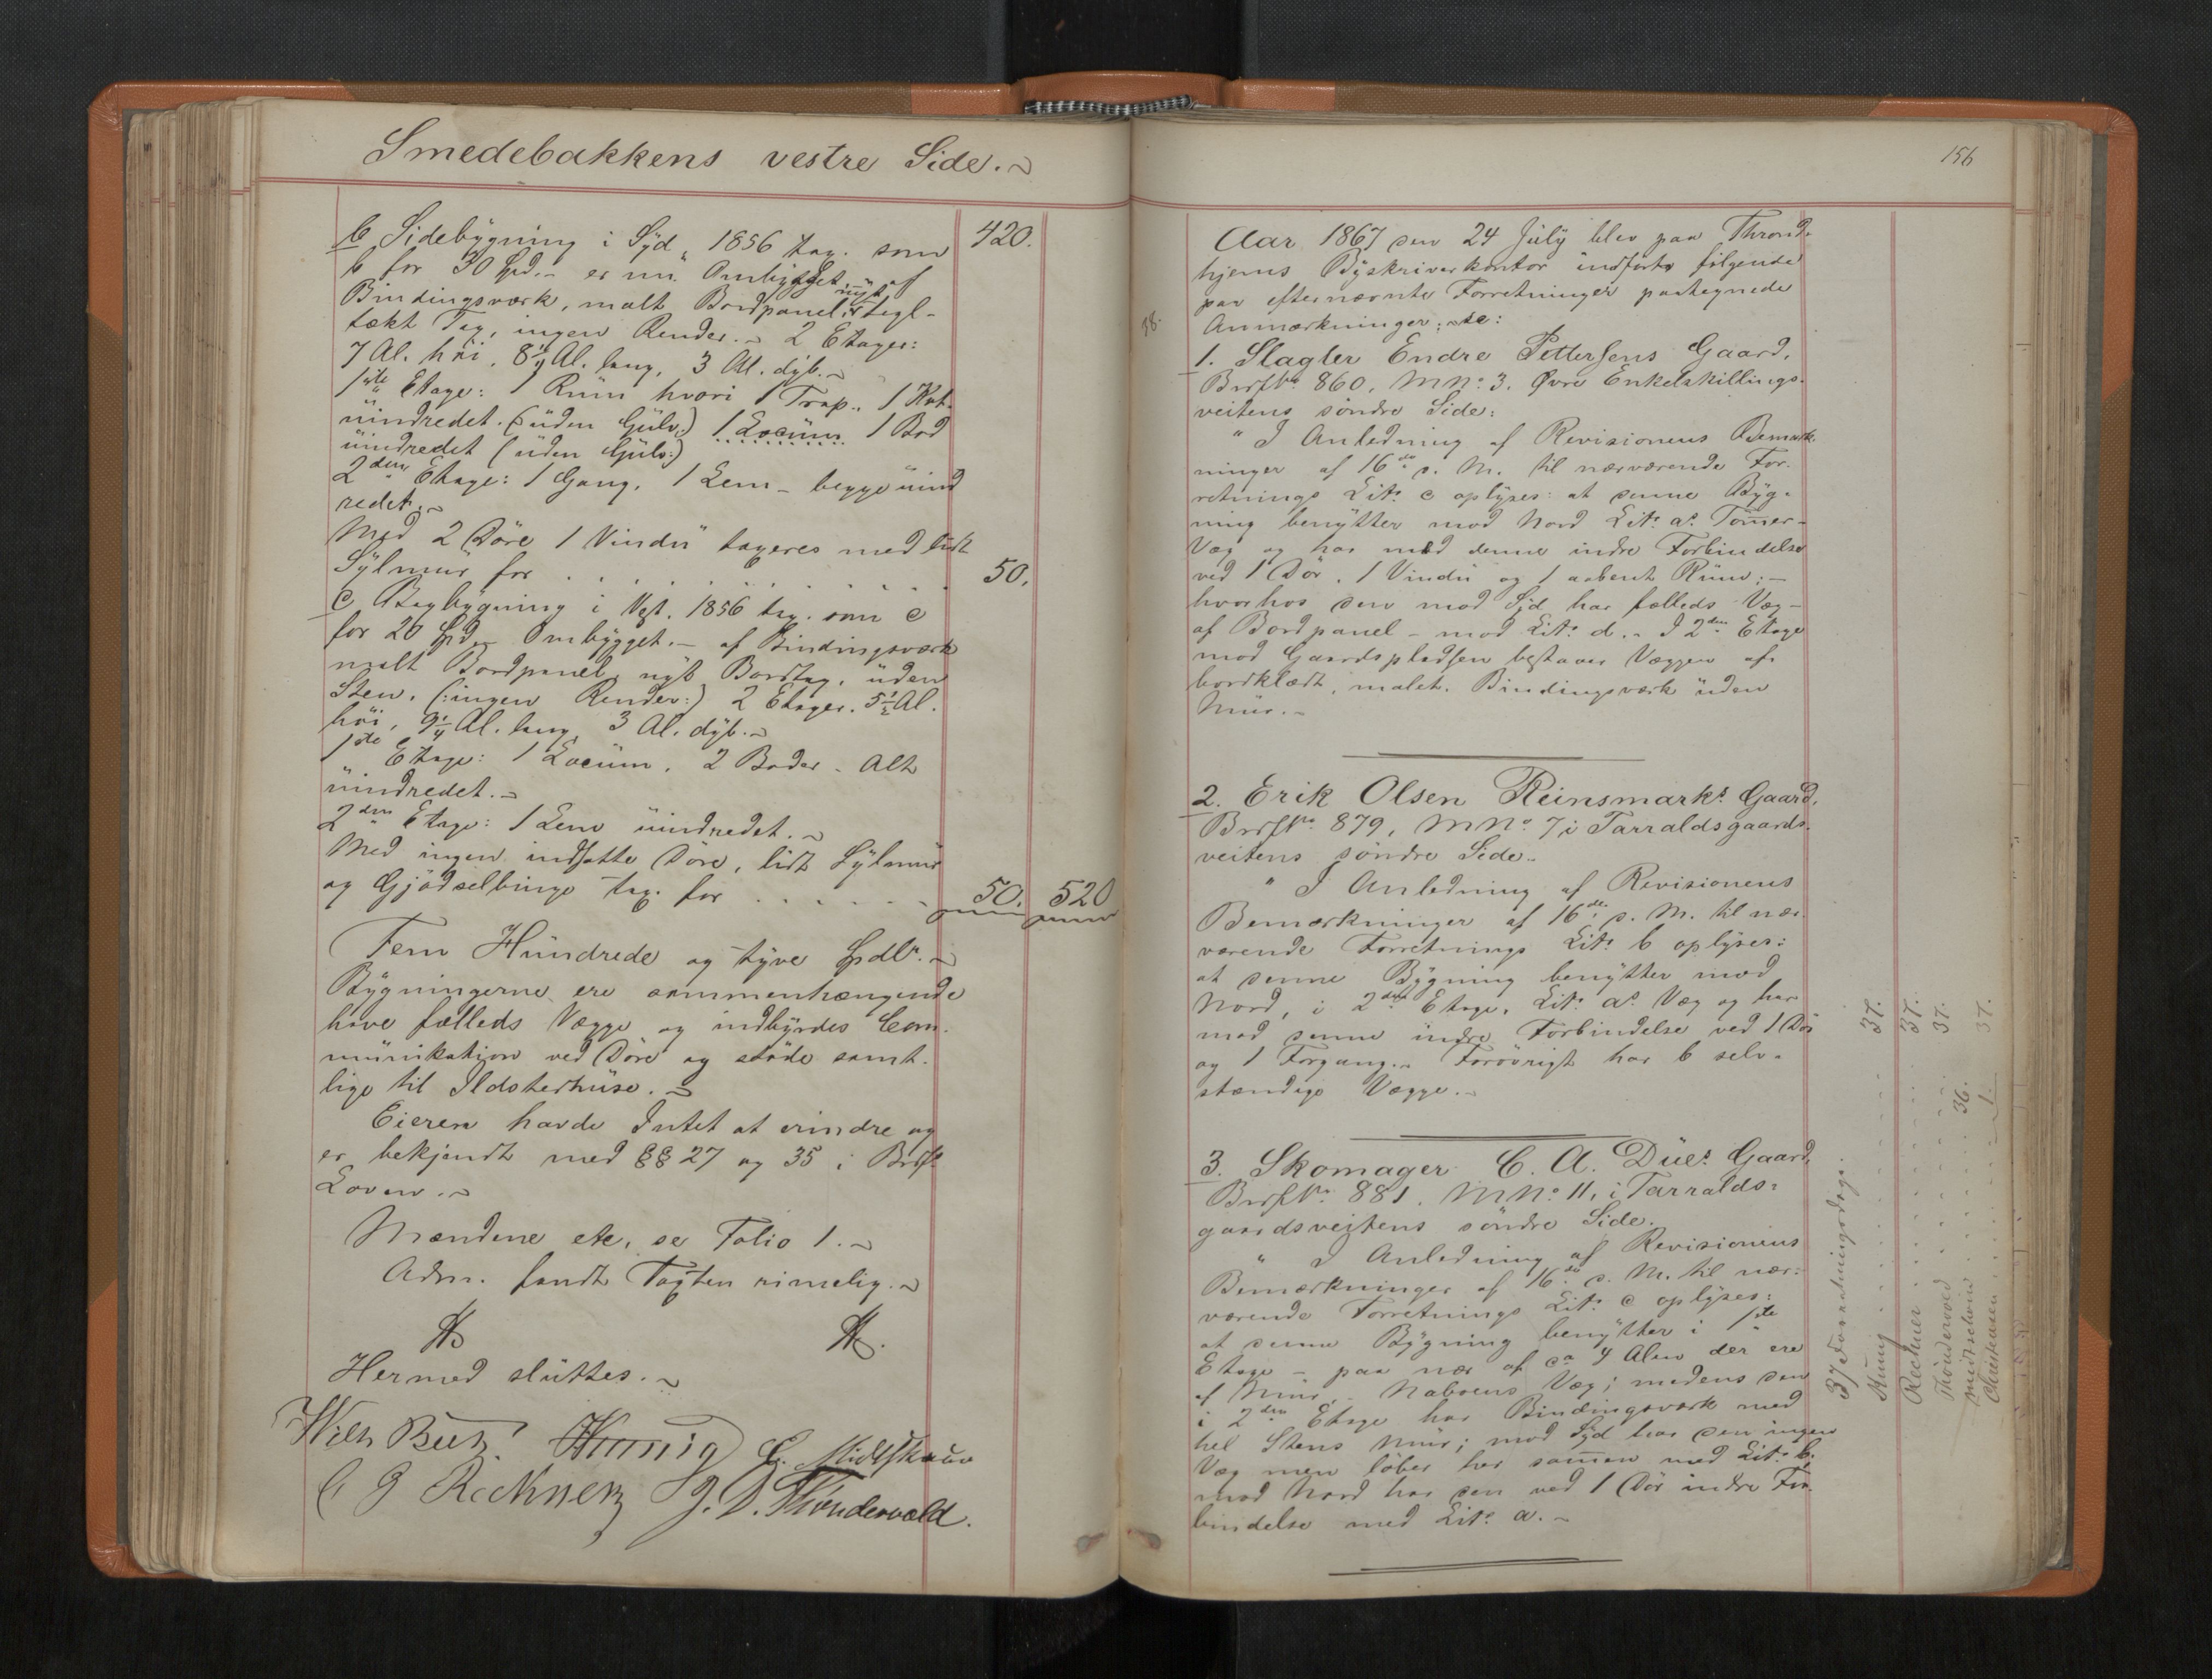 Smedebakkens vestre Side.
b Sidebÿgning i Sÿd, 1856 tax. som 420.
b for 30 Spd. er nu Ombÿgget af
Bindingsværk, malt Bordpanel, nÿt tegl-
tækt Tag, ingen Render. 2 Etager:
7 Al. höi, 8¼ Al. lang, 3 Al. dÿb.
1ste Etage: 1 Rüm hvori 1 Trap., 1 Kot
üindredet. (üden Gülv:) 1 Locüm 1 Bod
üindredet (üden Gülv:)
2den Etage: 1 Gang, 1 Lem - begge üind
redet.
Med 2 Döre 1 Vindü taxeres med lidt
Sÿlmür for . . . . . . . . 50.
c Bagbÿgning i Vest. 1856 tax. som c
for 20 Spd. Ombÿgget. - af Bindingsværk
malt Bordpanel, nÿt Bordtag, üden
Sten. (:ingen Render:) 2 Etager. 5½ Al.
höi, 9¼ Al. lang, 3 Al. dÿb.
1ste Etage: 1 Locüm, 2 Boder. Alt
üindredet.
2den Etage: 1 Lem üindredet.
Med ingen indsatte Döre, lidt Sÿlmür
og Gjödselbinge tax. for . . . . . . 50. 520
Fem Hündrede og tÿve Spdlr.
Bÿgningerne ere sammenhængende
have fælleds Vægge og indbÿrdes Com-
münikation ved Döre og stöde samt-
lige til Ildstedhüse.
Eieren havde Intet at erindre og
er bekjendt med §§ 27 og 35 i Brdf.
Loven.
Mændene etc. se Folio 1.
Adm. fandt Taxten rimelig.
Hermed slüttes.
Wilh Bütz. Hünnig C. Midtskauv
C G Rechner J. D. Thonderwald.
156
38.
Aar 1867 den 24 Jülÿ blev paa Thrond-
hjems Bÿskriverkontor indförte fölgende
paa efternævnte Forretninger paategnede
Anmærkninger:
1. Slagter Endre Pettersens Gaard,
Brdf No. 860, MNo. 3. Øvre Enkelskillings-
veitens söndre Side:
" I Anledning af Revisionens Bemærk-
ninger af 16de d. M. til nærværende For-
retnings Litr. c oplÿses: at denne Bÿg-
ning benÿtter mod Nord Litr. as Tömmer-
Væg og har med denne indre Forbindelse
ved 1 Dör, 1 Vindü og 1 aabent Rüm; -
hvorhos den mod Sÿd har fælleds Væg-
af Bordpanel - mod Litr. d. - I 2den Etage
mod Gaardspladsen bestaaer Væggen af
bordklædt, malet Bindingsværk üden
Mür.
2. Erik Olsen Reinsmarks Gaard,
Brdf No. 879, MNo. 7 i Tarraldsgaards-
veitens söndre Side.
" I Anledning af Revisionens
Bemærkninger af 16de d. M. til nær-
værende Forretnings Litr. b oplÿses:
at denne Bÿgning benÿtter mod
Nord, i 2den Etage, Litr. as Væg og har
med denne indre Forbindelse ved 1 Dör
og 1 Forgang. Foröv­rigt har b selv-
stændige Vægge.
3. Skomager C. A. Düe's Gaard,
Brdf No. 881. MNo. 11, i Tarralds-
gaardsveitens söndre Side.
" I Anledning af Revisionens
Bemærkninger af 16de d. M. til nær-
værende Forretnings Litr. c oplÿses:
at denne Bÿgning benÿtter i 1ste
Etage - paa nær af ca 4 Alen der ere
af Mür, - Naboens Væg; medens den
i 2den Etage har Bindingsværk med
hel Stens Mür; mod Sÿd har den ingen
Væg men löber her sammen med Litr. b.
mod Nord har den ved 1 Dör indre For-
bindelse med Litr. a.
37 Forretningsdage.
Hünig . . . . 37.
Rechner . . . . 37.
Thonderwald . . . . 37.
Midtschau . . . . 36.
Christensen . . . . 1. 37.